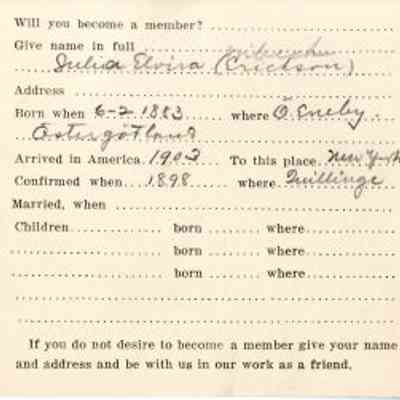 Will you become a member?
Give name in full
Julia Elvira (Erickson)
Address
Born when 6-2 1883 where Ö. Eneby
Östergötland
Arrived in America 1902 To this place New York
Confirmed when 1898 where Quillinge
Married, when
Children born where
born where
born where
If you do not desire to become a member give your name
and address and be with us in our work as a friend.